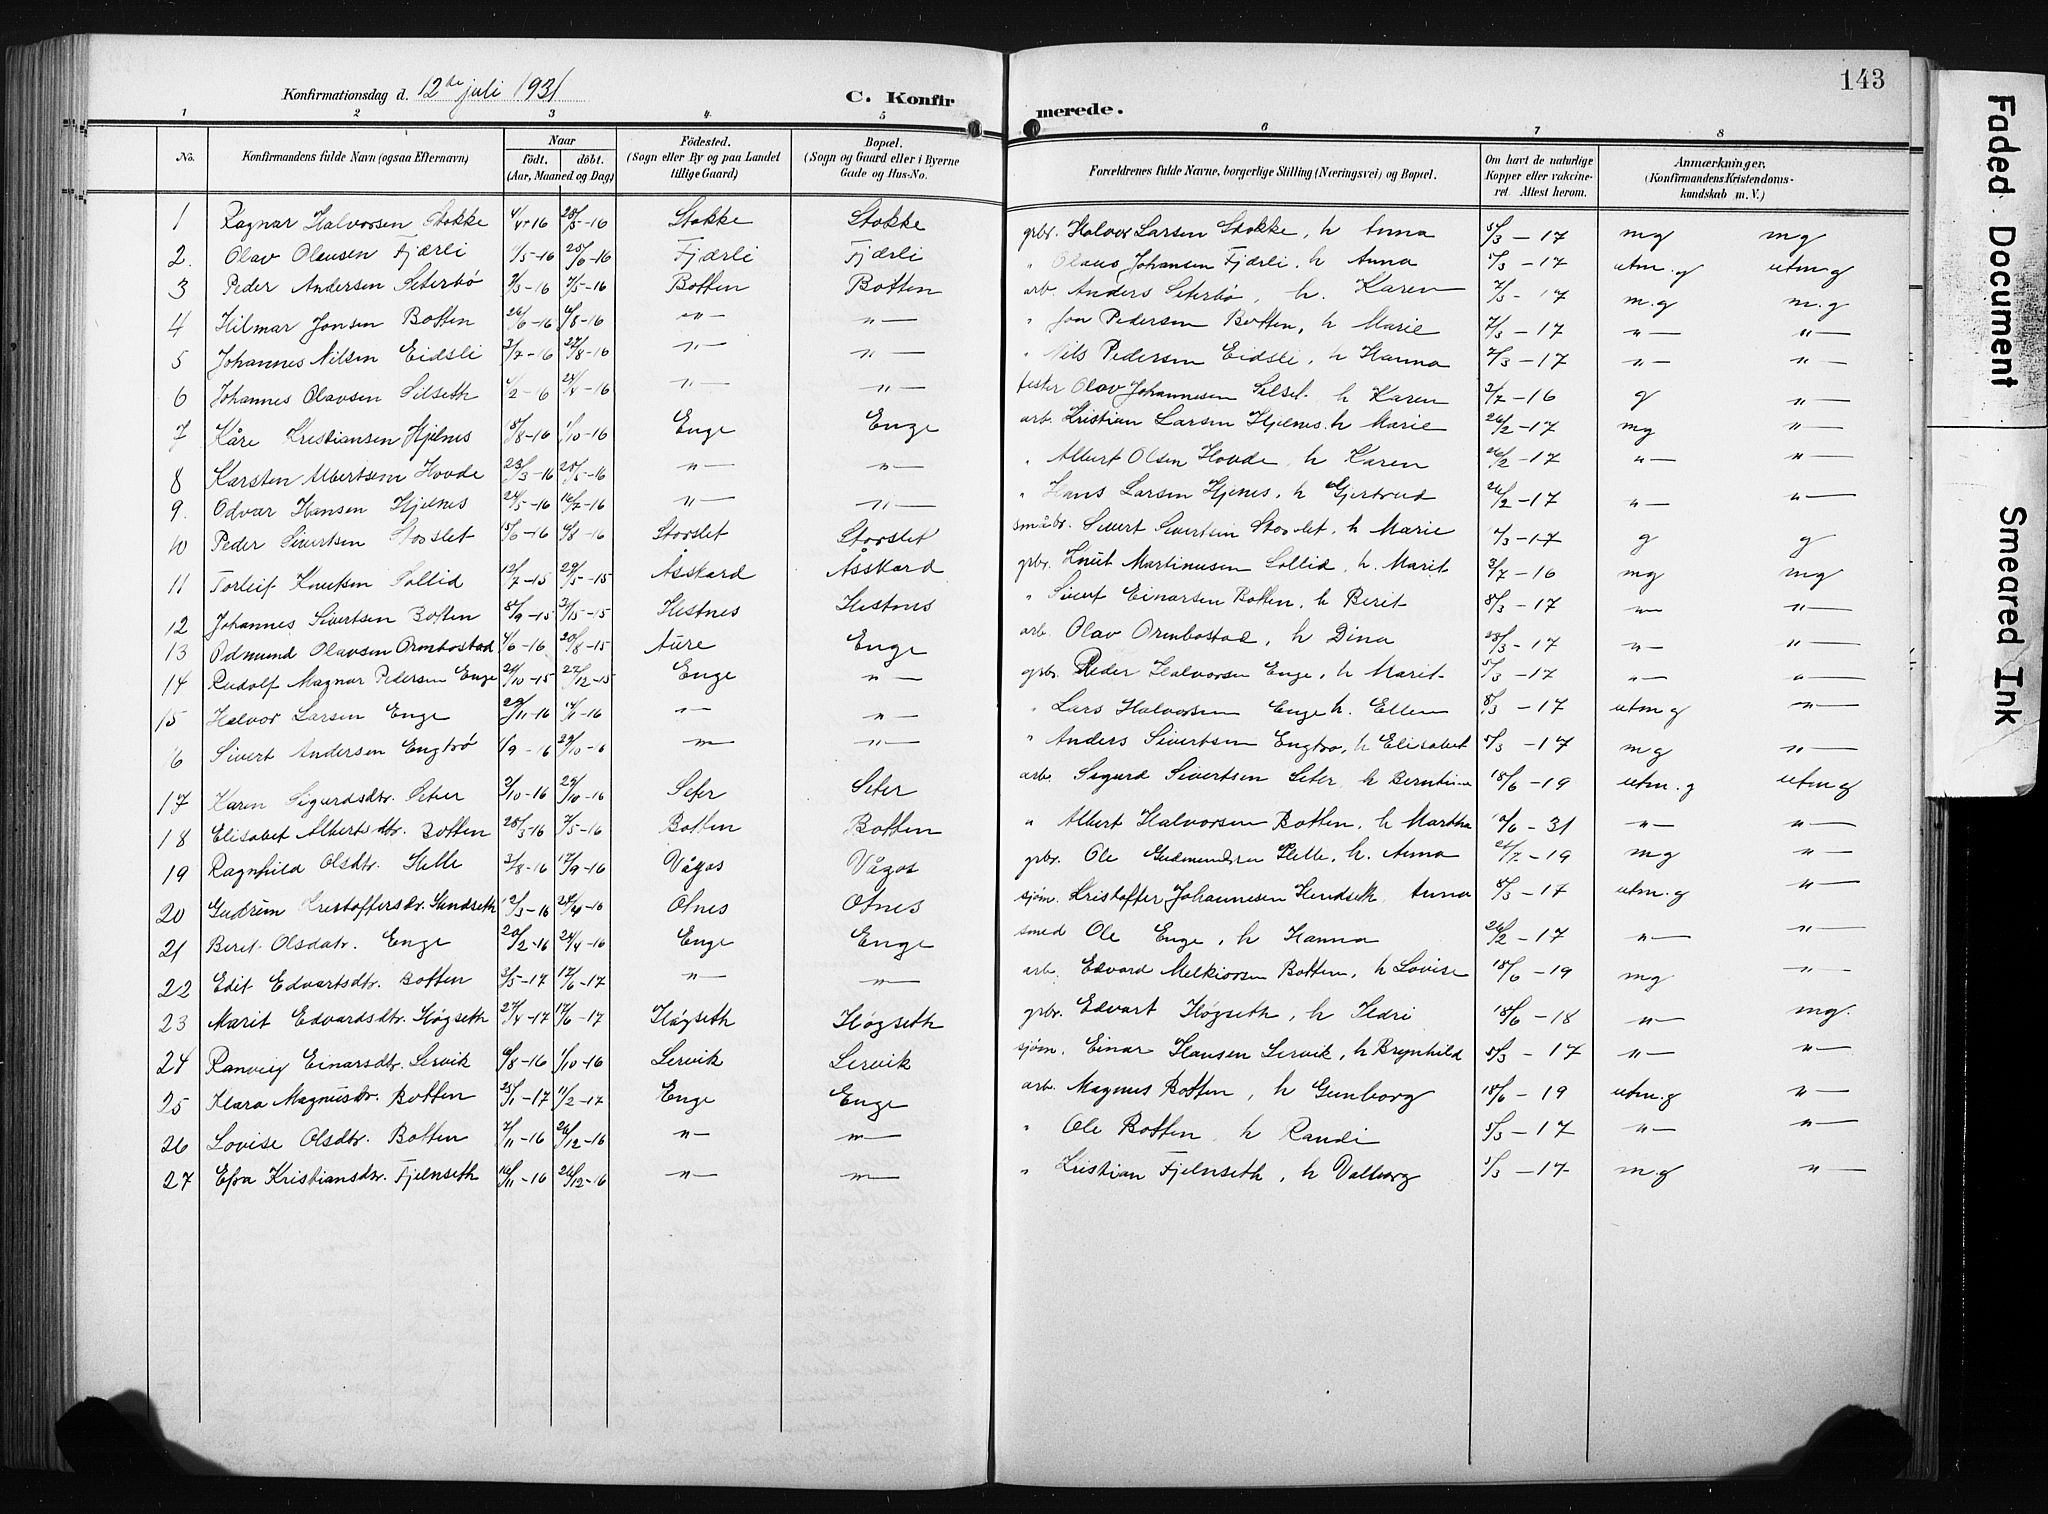 143
Konfirmationsdag d. 12te juli 1931 C. Konfirmerede.
1 2 3 4 5 6 7 8
No. Konfirmandens fulde Navn (ogsaa Efternavn) Naar födt. döbt. (Aar, Maaned og Dag) Födested. (Sogn eller By og paa Landet tillige Gaard) Bopæl. (Sogn og Gaard eller i Byerne Gade og Hus-No. Forældrenes fulde Navne, borgerlige Stilling (Næringsvei) og Bopæl. Om havt de naturlige Kopper eller vakcineret. Attest herom. Anmærkninger. (Konfirmandens Kristendomskundskab m. V.)
1 Ragnar Halvorsen Stokke 4/4-16 28/5-16 Stokke Stokke grbr. Halvor Larsen Stokke, h Anna 5/3-17 mg mg
2. Olav Olausen Fjærli /5-16 25/6-16 Fjærli Fjærli " Olaus Johansen Fjærli, h Anna 5/3-17 utm.g utm g
3 Peder Andersen Seterbö 3/3-16 7/5-16 Botten Botten arb. Anders Seterbö, h. Karen 7/3-17 m.g m.g
4 Hilmar Jonsen Botten 26/6-16 6/8-16 "— "— " Jon Pedersen Botten, h Marie 7/3-17 "— "—
5 Johannes Nilsen Eidsli 3/7-16 27/8-16 "— "— " Nils Pedersen Eidsli, h Hanna 7/3-17 "— "—
6 Johannes Olavsen Silseth /2-6 24/4-16 "— "— fisker Olav Johannesen Silset. h Karen 3/7-16 g "—
7 Kåre Kristiansen Hjelnes 5/8-16 1/10-16 Enge Enge arb. Kristian Larsen Hjelnes. h Marie 26/2-17 mg "—
8 Karsten Albertsen Hovde 23/3-16 28/5-16 "— "— " Albert Olsen Hovde, h Karen 26/2-17 "— "—
9. Odvar Hansen Hjelnes 24/5-16 16/7-16 "— "— " Hans Larsen Hjenes, h Gjertrud 26/2-17 "— "—
10 Peder Sivertsen Storslet 15/6-16 6/8-16 Storslet Storslet småbr. Sivert Sivertsen Storslet, h Marie 7/3-17 g g
11 Torleif Knutsen Sollid 12/7-15 29/5-15 Åsskard Åsskard grbr. Knut Martinusen Sollid, h. Marit 3/7-16 mg mg
12 Johannes Sivertsen Botten 8/9-15 3/15-15 Hestnes Hestnes " Sivert Einarsen Botten, h Berit 8/3-17 "— "—
13 Odmund Olavsen Ormbostad 4/6-16 20/8-15 Aure Enge arb. Olav Ormbostad, h Dina 28/3-17 "— "—
14 Rudolf Magnar Pedersen Enge 21/10-15 27/12-15 Enge "— grbr. Peder Halvorsen Enge, h Marit 5/3-17 "— "—
15 Halvor Larsen Enge 29/11-16 14/11-16 "— "— " Lars Halvorsen Enge h. Ellen 8/3-17 utm g "—
6 Sivert Andersen Engtrö 1/9-16 29/10-6 "— "— " Anders Sivertsen Engtrö, h Elisabet 5/3-17 mg "—
17 Karen Sigurdsdtr. Seter 3/10-16 29/10-16 Seter Seter arb Sigurd Sivertsen Seter, h Berntine 18/6-19 utm.g utm g
18 Elisabet Albertsdtr. Botten 28/3-16 7/5-16 Botten Botten " Albert Halvorsen Botten, h Martha 10/6-31 "— "—
19 Ragnhild Olsdtr. Helle 3/8-16 17/9-16 Vågos Vågos grbr. Ole Gudmundsen Helle, h. Anna 21/7-19 mg "—
20 Gudrun Kristoffersdr. Hendseth 12/3-16 24/4-16 Otnes Otnes sjøm. Kristoffer Johannesen Hendseth Anna 8/3-17 utm.g "—
21 Berit Olsdatr. Enge 20/2-16 24/4-16 Enge Enge smed Ole Enge, h Hanna 26/2-17 "— "—
22 Edit Edvartsdtr. Botten 3/5-17 17/6-17 "— "— arb. Edvard Melkiorsen Botten, h Lovise 18/6-19 mg "—
23 Marit Edvardsdtr. Högseth 27/4-17 17/6-17 Högseth Högseth grbr. Edvart Högseth, h Kari 18/6-18 "— mg.
24 Ranveig Einarsdtr. Lervik 6/8-16 1/10-16 Lervik Lervik sjøm. Einar Hansen Lervik, h Brynhild 5/3-17 "— "—
25 Klara Magnusdtr. Botten 25/1-17 11/2-17 Enge Enge arb. Magnus Botten, h Gunborg 18/6-19 utm.g "—
26 Lovise Olsdtr. Botten 7/11-16 26/12-16 "— "— " Ole Botten h Randi 5/3-17 "— "—
27 Efra Kristiansdtr. Fjelnseth 16/11-16 26/12-16 "— "— " Kristian Fjelnseth, h Valborg 5/3-17 m.g "—
Faded Document
Smeared Ink